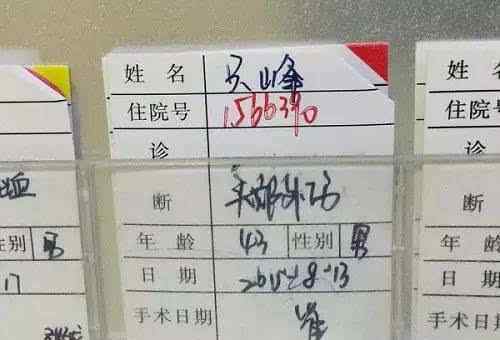 姓名 吴山峰
住院号 1566390
诊
断 头部外伤
年龄 43 性别 男
日期 2015-8-13
手术日期
性别 男
17
姓
住院
诊
断
年龄
日期
手术日